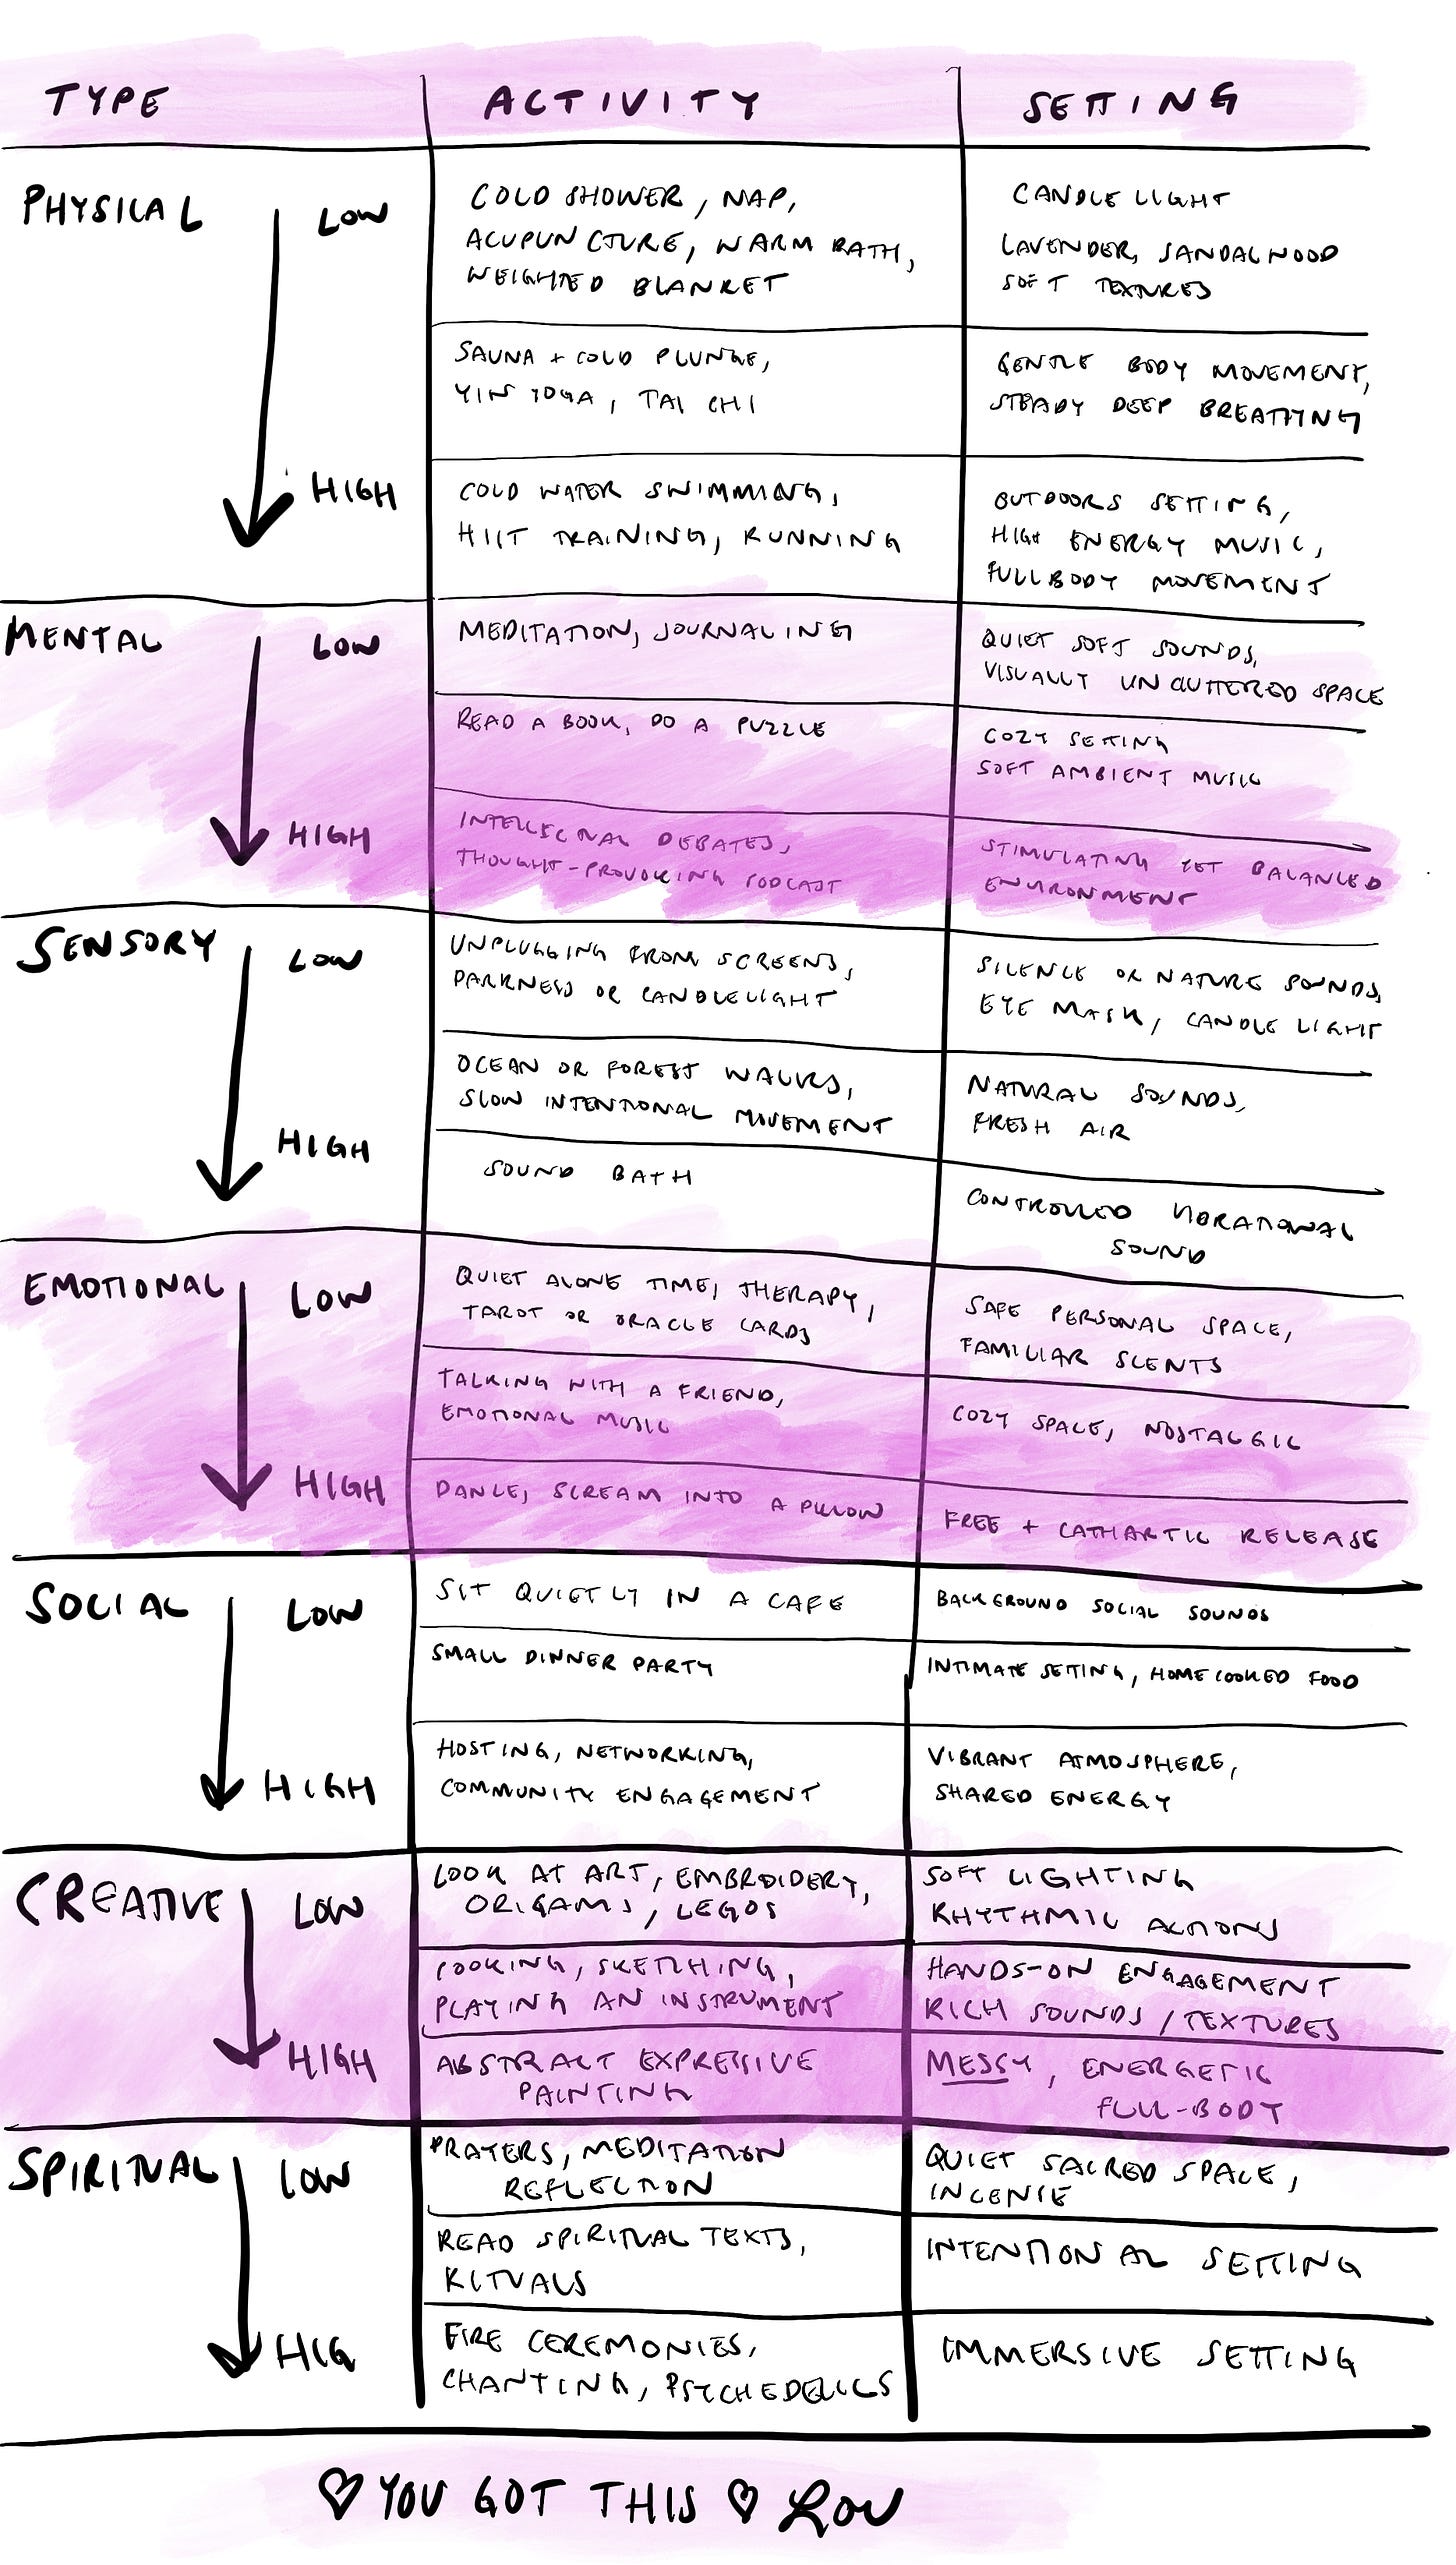 TYPE ACTIVITY SETTING
PHYSICAL LOW
COLD SHOWER, NAP,
ACUPUNCTURE, WARM BATH,
WEIGHTED BLANKET
CANDLE LIGHT
LAVENDER, SANDALWOOD
SOFT TEXTURES
SAUNA + COLD PLUNGE,
YIN YOGA, TAI CHI
GENTLE BODY MOVEMENT,
STEADY DEEP BREATHING
HIGH
COLD WATER SWIMMING,
HIIT TRAINING, RUNNING
OUTDOORS SETTING,
HIGH ENERGY MUSIC,
FULL BODY MOVEMENT
MENTAL LOW
MEDITATION, JOURNALING
QUIET SOFT SOUNDS,
VISUALLY UNCLUTTERED SPACE
READ A BOOK, DO A PUZZLE
COZY SETTING
SOFT AMBIENT MUSIC
HIGH
INTELLECTUAL DEBATES,
THOUGHT-PROVOKING PODCAST
STIMULATING YET BALANCED
ENVIRONMENT
SENSORY LOW
UNPLUGGING FROM SCREENS,
DARKNESS OR CANDLELIGHT
SILENCE OR NATURE SOUNDS,
EYE MASK, CANDLE LIGHT
OCEAN OR FOREST WALKS,
SLOW INTENTIONAL MOVEMENT
NATURAL SOUNDS,
FRESH AIR
HIGH
SOUND BATH
CONTROLLED VIBRATIONAL
SOUND
EMOTIONAL LOW
QUIET ALONE TIME, THERAPY,
TAROT OR ORACLE CARDS
SAFE PERSONAL SPACE,
FAMILIAR SCENTS
TALKING WITH A FRIEND,
EMOTIONAL MUSIC
COZY SPACE, NOSTALGIC
HIGH
DANCE, SCREAM INTO A PILLOW
FREE + CATHARTIC RELEASE
SOCIAL LOW
SIT QUIETLY IN A CAFE
BACKGROUND SOCIAL SOUNDS
SMALL DINNER PARTY
INTIMATE SETTING, HOMECOOKED FOOD
HIGH
HOSTING, NETWORKING,
COMMUNITY ENGAGEMENT
VIBRANT ATMOSPHERE,
SHARED ENERGY
CREATIVE LOW
LOOK AT ART, EMBROIDERY,
ORIGAMI, LEGOS
SOFT LIGHTING
RHYTHMIC ACTIONS
COOKING, SKETCHING,
PLAYING AN INSTRUMENT
HANDS-ON ENGAGEMENT
RICH SOUNDS / TEXTURES
HIGH
ABSTRACT EXPRESSIVE
PAINTING
MESSY, ENERGETIC
FULL-BODY
SPIRITUAL LOW
PRAYERS, MEDITATION
REFLECTION
QUIET SACRED SPACE,
INCENSE
READ SPIRITUAL TEXTS,
RITUALS
INTENTIONAL SETTING
HIG
FIRE CEREMONIES,
CHANTING, PSYCHEDELICS
IMMERSIVE SETTING
♡ YOU GOT THIS ♡ Lou